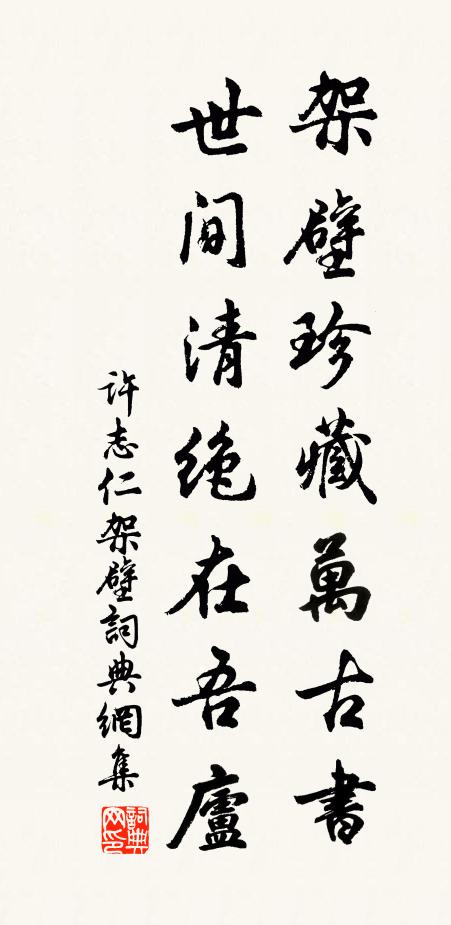 架壁珍藏萬古書
世间清绝在吾廬
许志仁架壁詞典網集
詞典网印